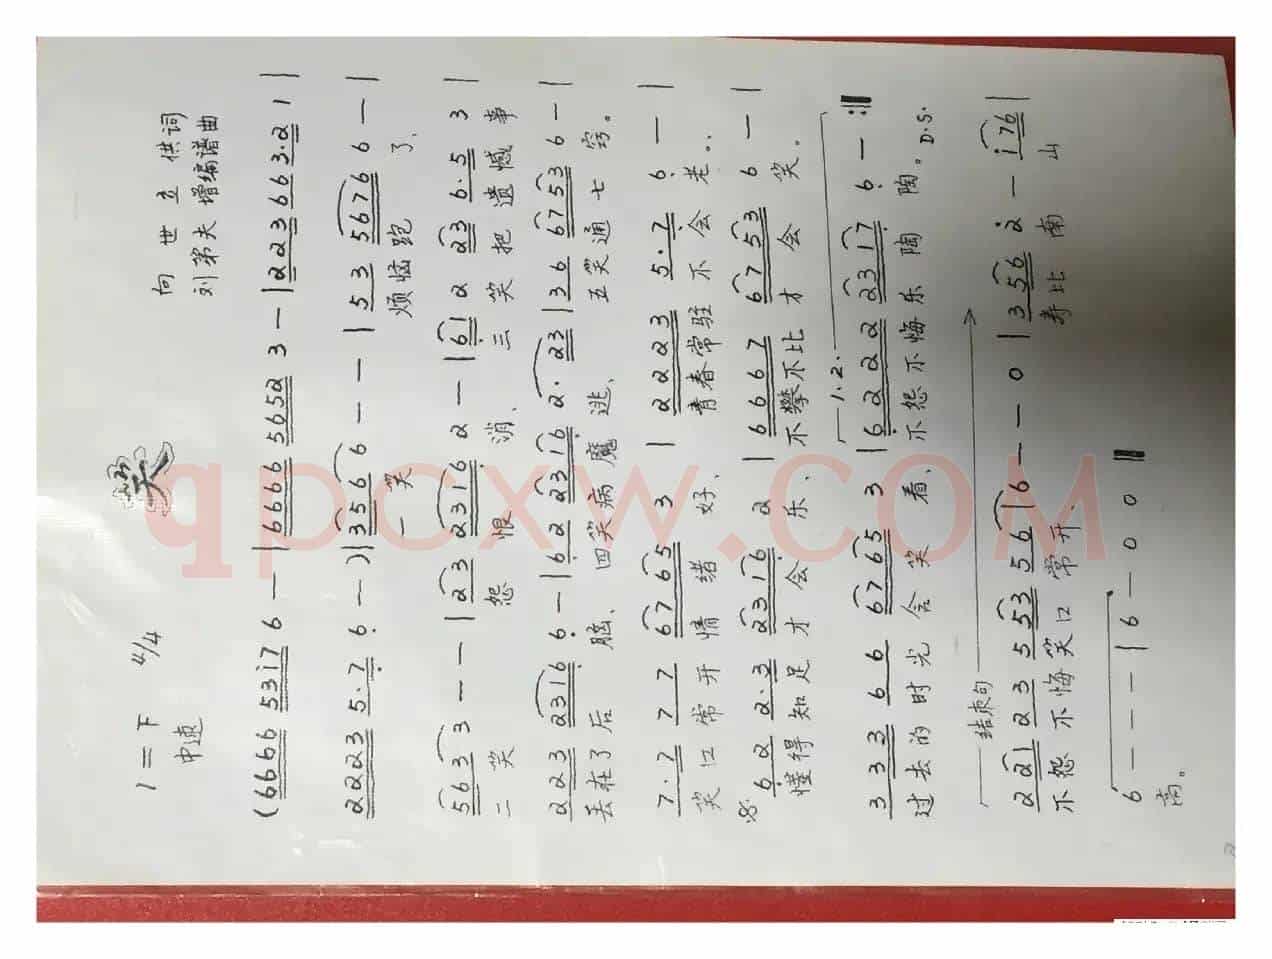 笑
1=F 4/4
中速
向世立 供词
刘第夫 增编谱曲
(6666 5317 6 — | 6666 5652 3 — | 223 663·2 1 |
2223 5·7 6 — —) | 356 6 — — | 53 5676 6 — |
一笑 烦恼跑了、
563 3 — — | 23 2316 2 — | 61 2 23 6·5 3 |
二笑 怨恨消、 三笑把遗憾事
223 2316 6 — | 62 2316 2· 23 | 36 6753 6 — |
丢在了后脑、 四笑病魔逃、 五笑通七窍。
7·7 77 6765 3 | 2223 5·7 6 — |
笑口常开情绪好、 青春常驻不会老。
62 2·3 2316 2 | 6667 6753 6 — |
懂得知足才会乐、 不攀不比才会笑。
1.2.
333 66 6765 3 | 6222 2317 6 — :|
过去的时光含笑看、 不怨不悔乐陶陶。 D.S.
结束句
221 23 553 56 | 6 — — 0 | 356 2 — 176 |
不怨不悔笑口常开、 寿比南山
6 — — — | 6 — 0 0 ‖
高。
qpcxw.COM